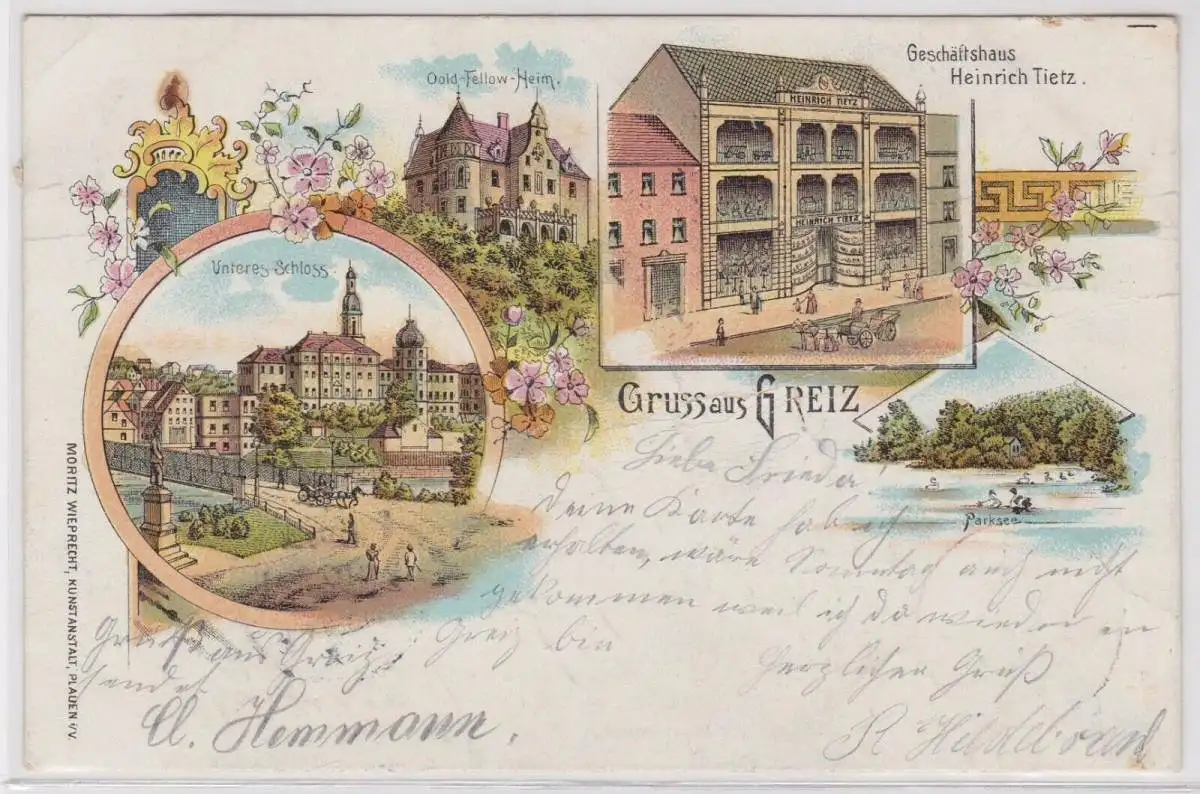 Oold-Fellow-Heim.
Geschäftshaus
Heinrich Tietz.
HEINRICH TIETZ
HEINRICH TIETZ
Unteres Schloss.
Gruss aus GREIZ
Parksee
Liebe Frieda
deine Karte hab ich
erhalten, wäre Sonntag auch nicht
gekommen weil ich da wieder in
Greiz bin
Herzlichen Gruß
R Hildebrand
Gruß aus Greiz
sendet
Cl. Hemmann.
MORITZ WIEPRECHT, KUNSTANSTALT, PLAUEN i/V.